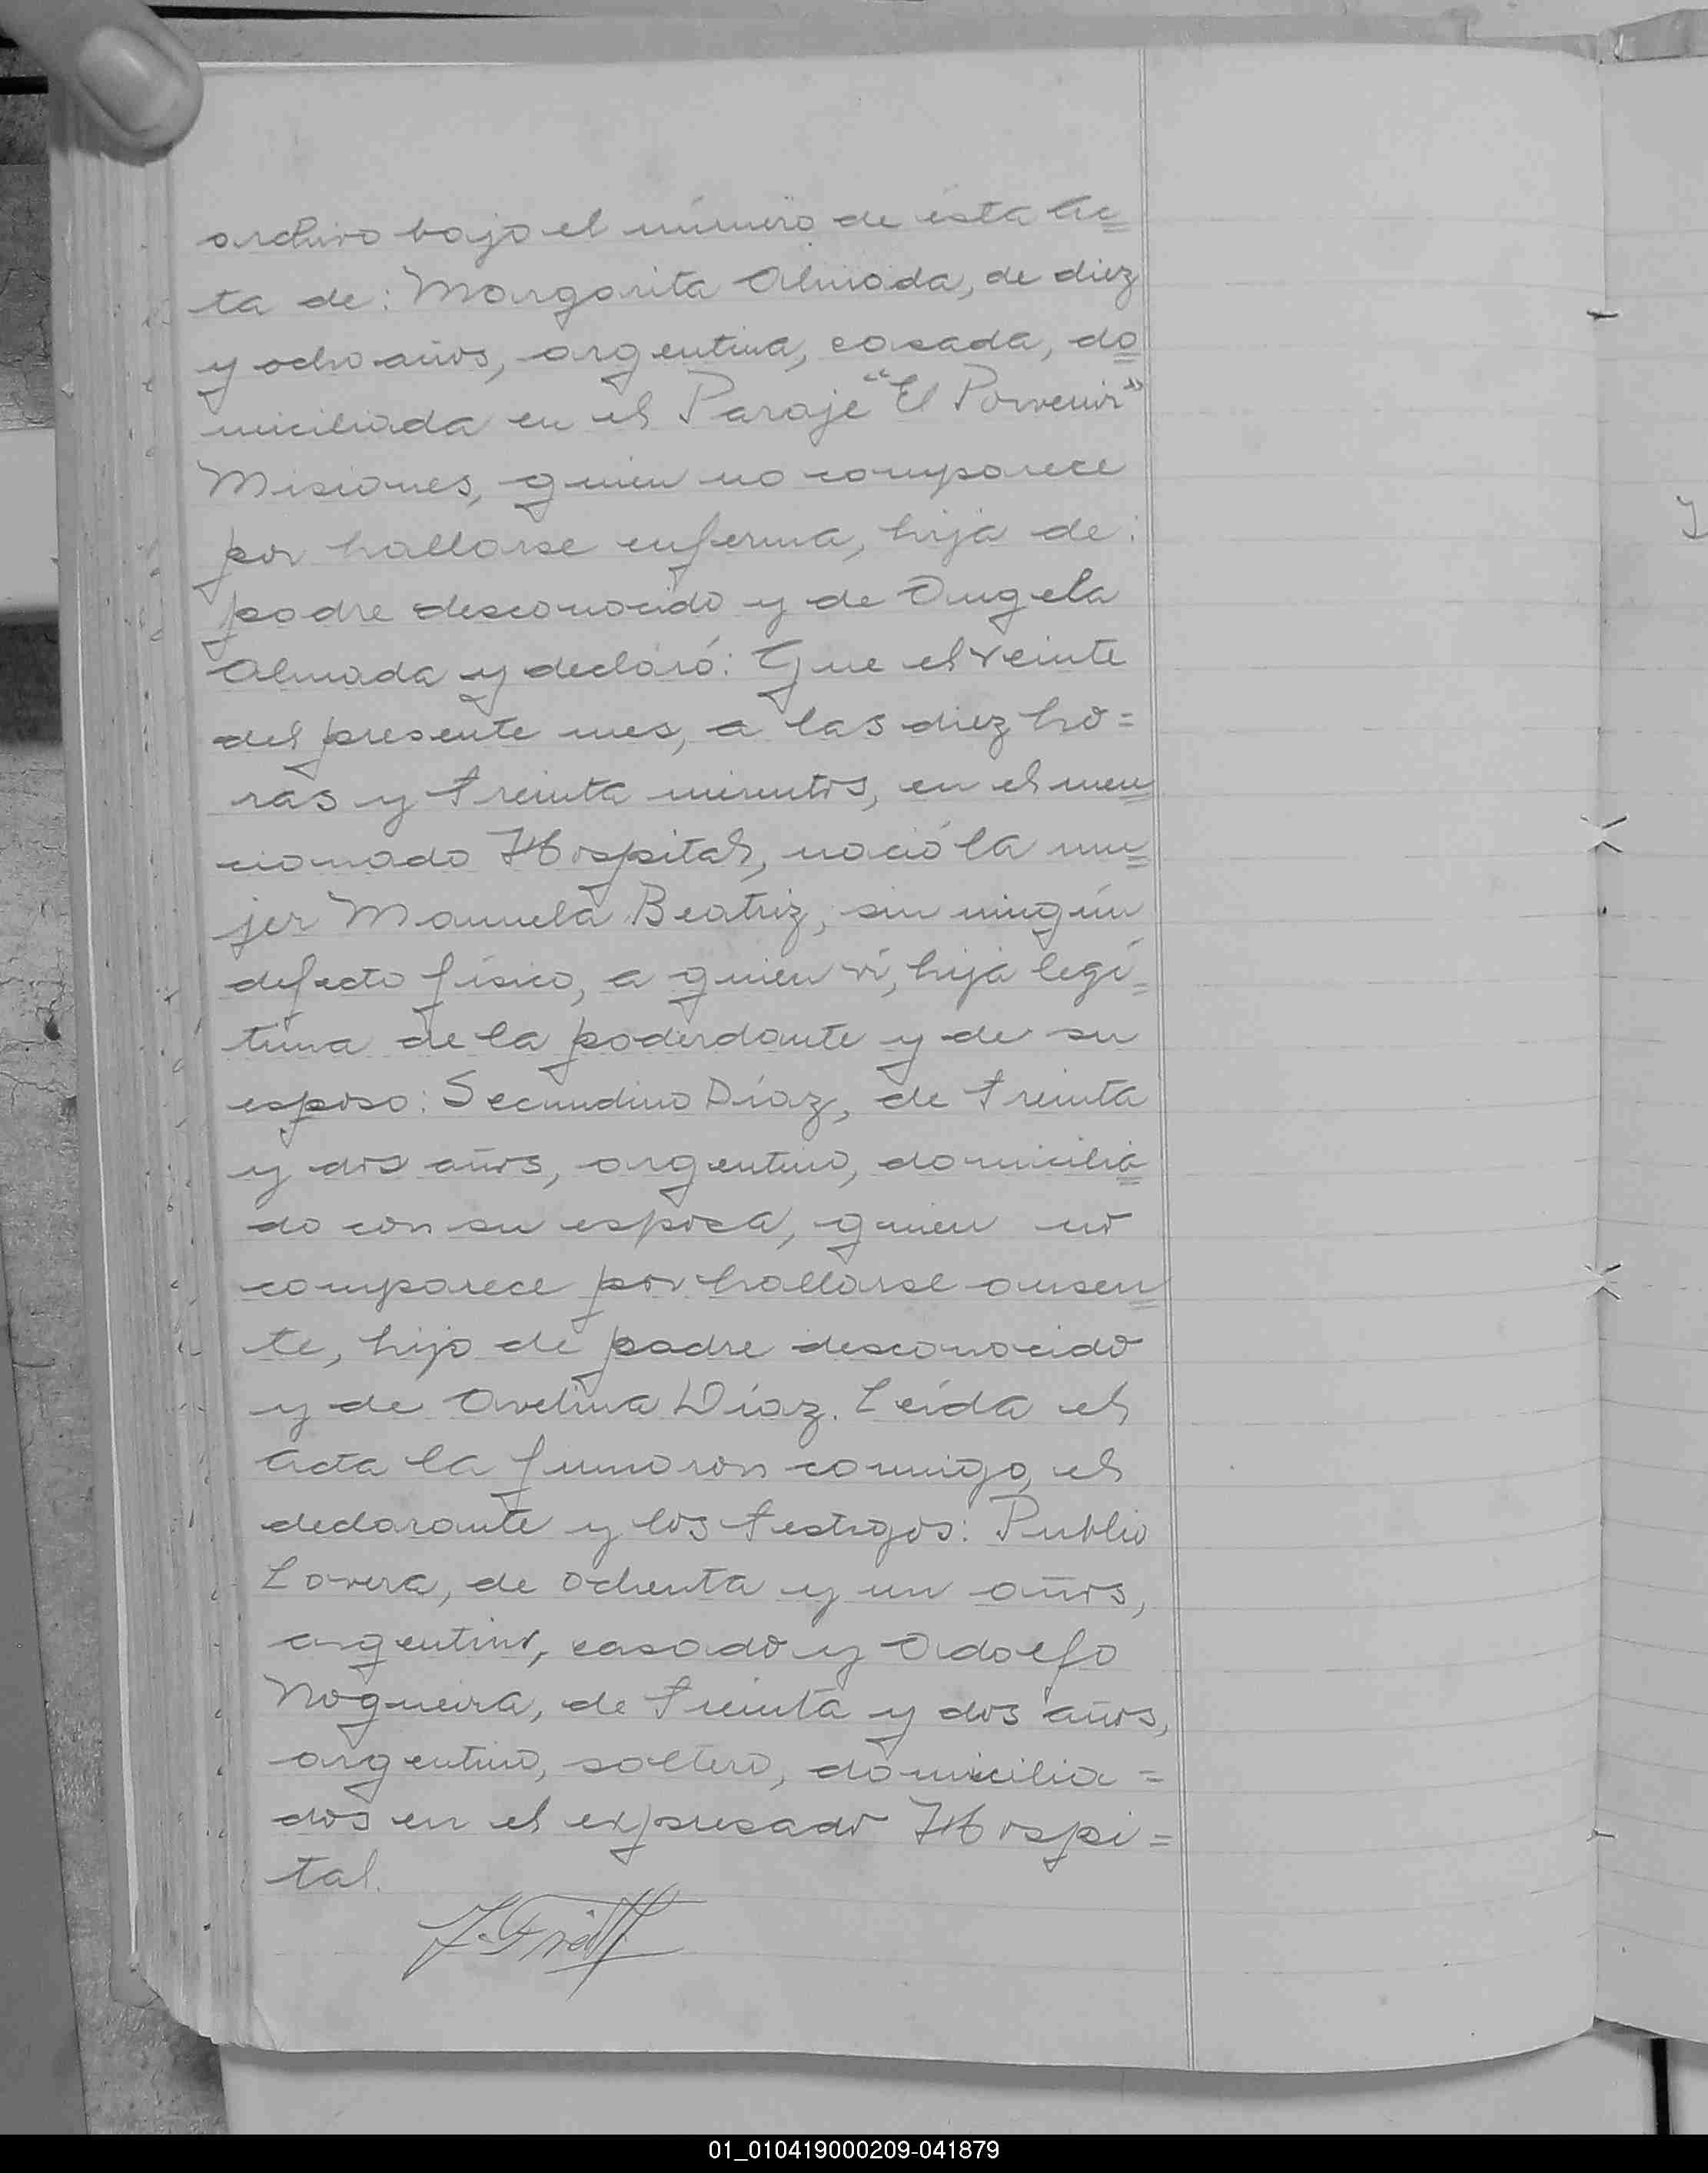 archivo bajo el número de ésta Ac=
ta de: Margarita Almada, de diez
y ocho años, argentina, casada, do=
miciliada en el Paraje "El Porvenir"
Misiones, quien no comparece
por hallarse enferma, hija de:
padre desconocido y de Angela
Almada y declaró: Que el veinte
del presente mes, a las diez ho=
ras y treinta minutos, en el men=
cionado Hospital, nació la mu=
jer Manuela Beatriz, sin ningún
defecto físico, a quien ví, hija legí=
tima de la poderdante y de su
esposo: Secundino Díaz, de treinta
y dos años, argentino, domicilia=
do con su esposa, quien no
comparece por hallarse ausen=
te, hijo de padre desconocido
y de Avelina Díaz. Leída el
Acta la firmaron conmigo, el
declarante y los testigos: Publio
Lovera, de ochenta y un años,
argentino, casado y Adolfo
Nogueira, de treinta y dos años,
argentino, soltero, domicilia=
dos en el expresado Hospi=
tal.
01_010419000209-041879